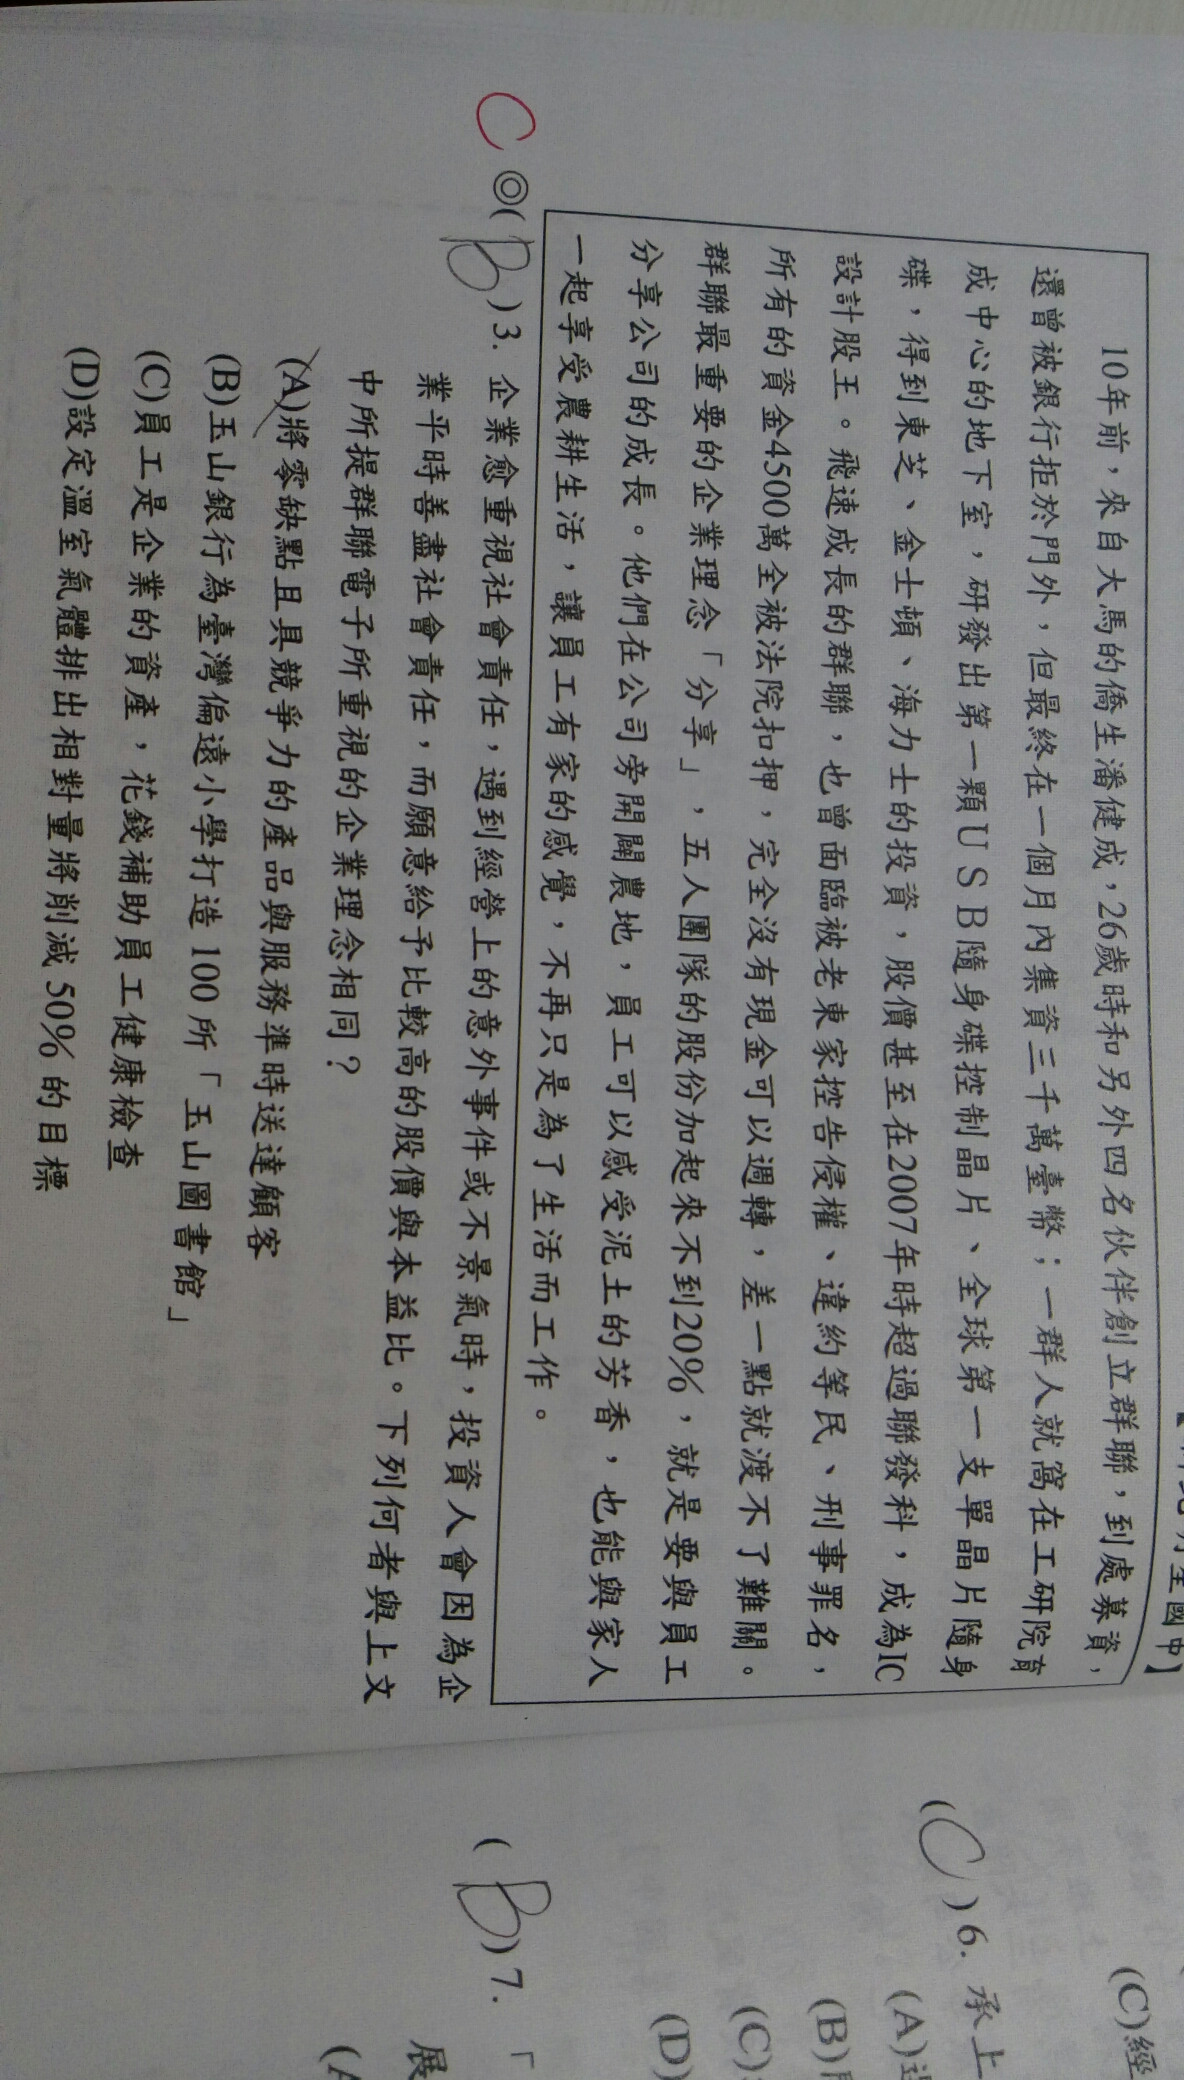 10年前，來自大馬的僑生潘健成，26歲時和另外四名伙伴創立群聯，到處募資，
還曾被銀行拒於門外，但最終在一個月內集資三千萬臺幣；一群人就窩在工研院育
成中心的地下室，研發出第一顆USB隨身碟控制晶片、全球第一支單晶片隨身
碟，得到東芝、金士頓、海力士的投資，股價甚至在2007年時超過聯發科，成為IC
設計股王。飛速成長的群聯，也曾面臨被老東家控告侵權、違約等民、刑事罪名，
所有的資金4500萬全被法院扣押，完全沒有現金可以週轉，差一點就渡不了難關。
群聯最重要的企業理念「分享」，五人團隊的股份加起來不到20%，就是要與員工
分享公司的成長。他們在公司旁開闢農地，員工可以感受泥土的芳香，也能與家人
一起享受農耕生活，讓員工有家的感覺，不再只是為了生活而工作。
C ◎(B)3. 企業愈重視社會責任，遇到經營上的意外事件或不景氣時，投資人會因為企
業平時善盡社會責任，而願意給予比較高的股價與本益比。下列何者與上文
中所提群聯電子所重視的企業理念相同？
(A)將零缺點且具競爭力的產品與服務準時送達顧客
(B)玉山銀行為臺灣偏遠小學打造100所「玉山圖書館」
(C)員工是企業的資產，花錢補助員工健康檢查
(D)設定溫室氣體排出相對量將削減50%的目標
全國中】
(C)經
(C)6. 承上
(A)
(B)
(C)
(D)
(B)7. 「
展
(A